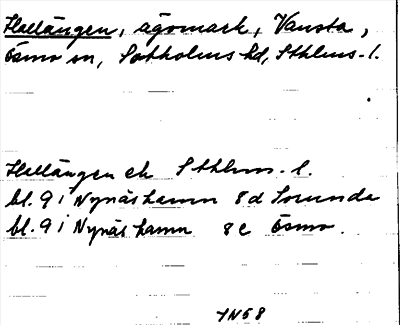 Hallängen, ägomark, Vansta,
Ösmo sn, Sotholms hd, Sthlms l.
Hallängen ek Sthlms l.
bl. 9 i Nynäshamn 8d Sorunda
bl. 9 i Nynäshamn 8c Ösmo.
IN58